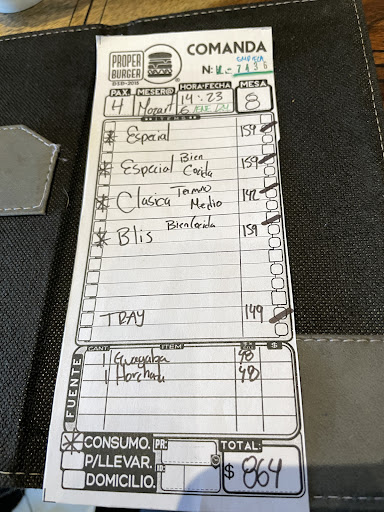 PROPER
BURGER
DSD-2018
COMANDA
N:
PAX. MESER@ HORA-FECHA MESA
4 Mozart 14:23 8
5 ENE
ITEMS
Especial 159
Especial Bien Cocida 159
Clasica Termino Medio 142
Blis Bien Cocida 159
TRAY 149
FUENTE
CANT ITEM $
1 Guayaba 48
1 Horchata 48
CONSUMO. PR:
P/LLEVAR.
DOMICILIO.
TOTAL:
$ 864